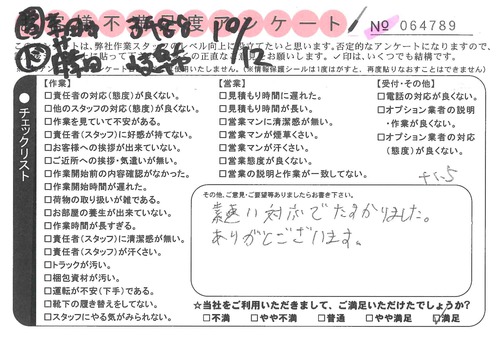 客様不満足度アンケート
№ 064789
10/12
このアンケートは、弊社作業スタッフのレベル向上に役立てたいと思います。否定的なアンケートになりますので、
の正直な
お願いします。✓印は、いくつでも結構です。
いたしません。(※情報保護シールは1度はがすと、再度貼りなおすことはできません)
チェックリスト
【作業】
□責任者の対応(態度)が良くない。
□他のスタッフの対応(態度)が良くない。
□作業を見ていて不安がある。
□責任者(スタッフ)に好感が持てない。
□お客様への挨拶が出来ていない。
□ご近所への挨拶・気遣いが無い。
□作業開始前の内容確認がなかった。
□作業開始時間が遅れた。
□荷物の取り扱いが雑である。
□お部屋の養生が出来ていない。
□作業時間が長すぎる。
□責任者(スタッフ)に清潔感が無い。
□責任者(スタッフ)が汗くさい。
□トラックが汚い。
□梱包資材が汚い。
□運転が不安(下手)である。
□靴下の履き替えをしてない。
□スタッフにやる気がみられない。
【営業】
□見積もり時間に遅れた。
□見積もり時間が長い。
□営業マンに清潔感が無い。
□営業マンが煙草くさい。
□営業マンが汗くさい。
□営業態度が良くない。
□営業の説明と作業が一致してない。
【受付・その他】
□電話の対応が良くない。
□オプション業者の説明
・作業が良くない。
□オプション業者の対応
(態度)が良くない。
その他、ご意見・ご要望等ありましたらお書き下さい。
素速い対応でたすかりました。
ありがとございます。
☆当社をご利用いただきまして、ご満足いただけたでしょうか?
□不満 □やや不満 □普通 □やや満足 □満足